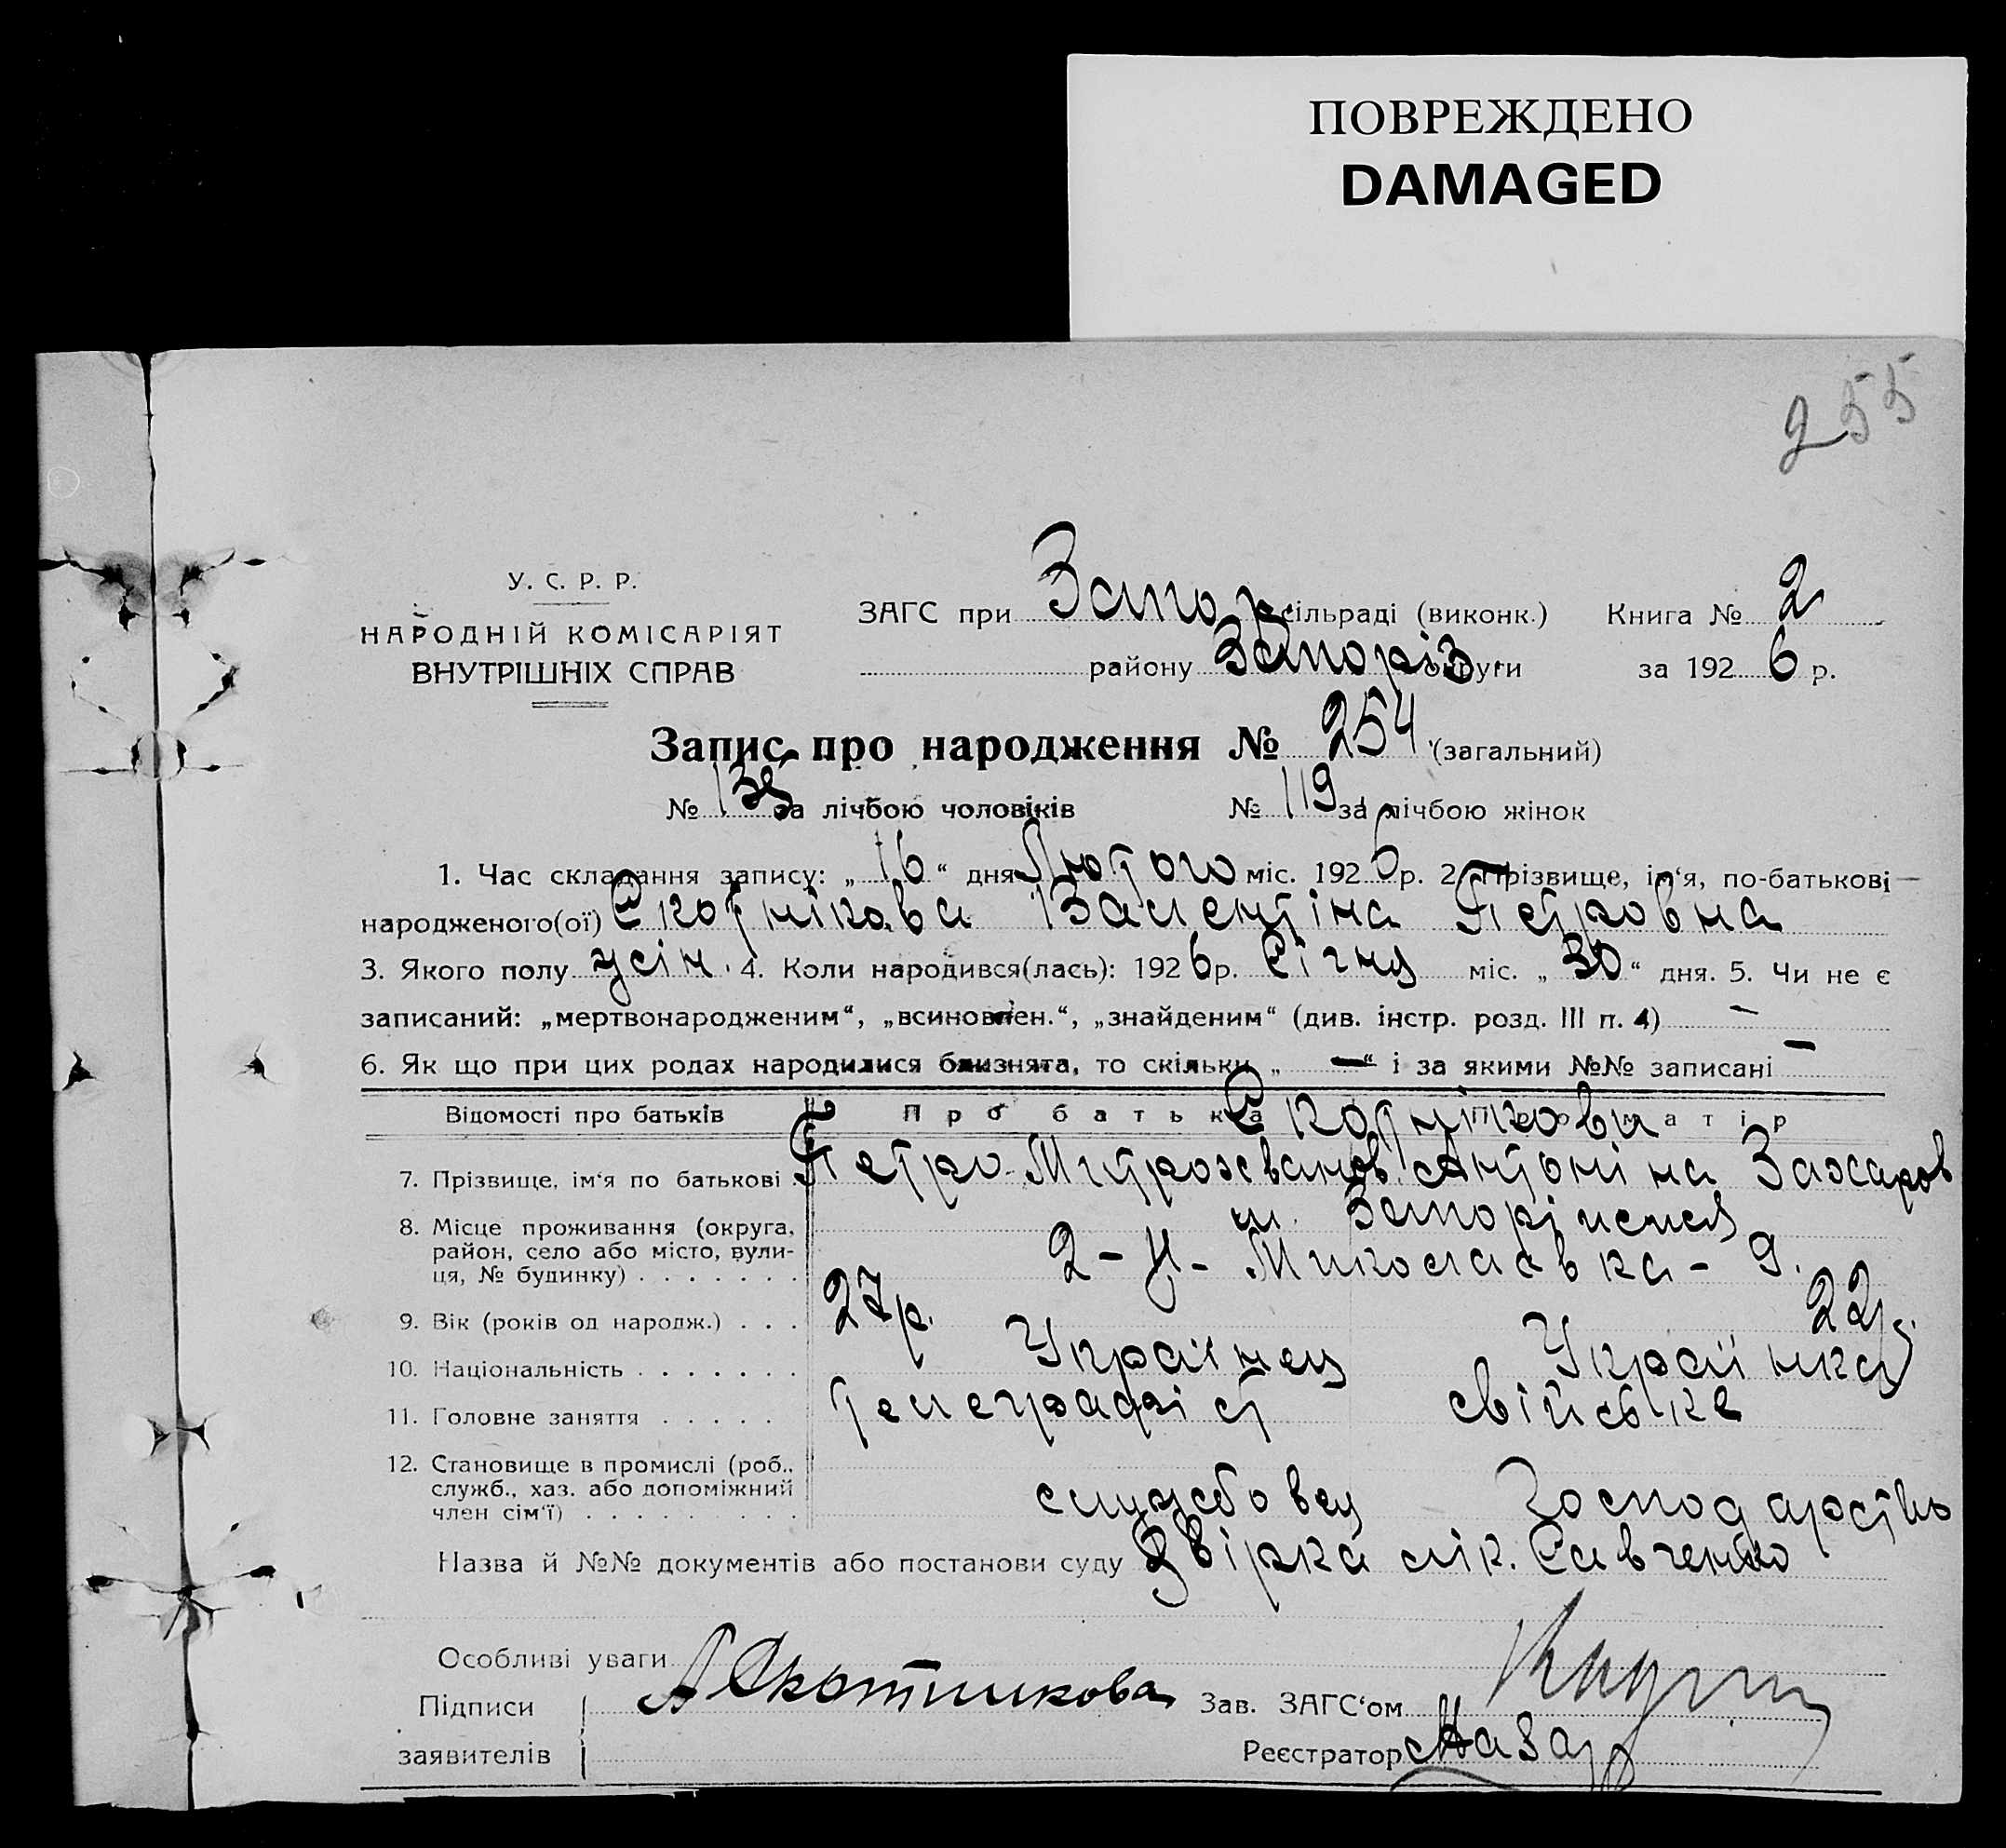 ПОВРЕЖДЕНО
DAMAGED
255
У. С. Р. Р.
НАРОДНІЙ КОМІСАРІЯТ
ВНУТРІШНІХ СПРАВ
ЗАГС при Запор сільраді (виконк.) Книга № 2
району Запоріз округи за 1926 р.
Запис про народження № 254 (загальний)
№ 135 за лічбою чоловіків № 119 за лічбою жінок
1. Час складання запису: „ 16 “ дня Лютого міс. 1926 р. 2. Прізвище, ім‘я, по-батькові
народженого(ої) Скотнікова Валентіна Петровна
3. Якого полу жін. 4. Коли народився(лась): 1926 р. Січня міс. „ 30 “ дня. 5. Чи не є
записаний: „мертвонародженим“, „всиновлен.“, „знайденим“ (див. інстр. розд. III п. 4) —
6. Як що при цих родах народилися близнята, то скільки „ — “ і за якими №№ записані —
Відомості про батьків Про батька Про матір
Скотнікови
7. Прізвище, ім‘я по батькові Петро Мітрохванов. Антоніна Захаров
8. Місце проживання (округа,
район, село або місто, вули-
ця, № будинку) . . . . . . .
м. Запоріжжя
2-й- Миколаївка - 9.
9. Вік (років од народж.) . . . 27р. 22р.
10. Національність . . . . . . . Українец Українка
11. Головне заняття . . . . . Телеграфіст свійське
12. Становище в промислі (роб.,
служб., хаз. або допоміжний
член сім‘ї) . . . . . . . . .
службовец господарство
Назва й №№ документів або постанови суду Звірка лік. Савченко
Особливі уваги
Підписи
заявителів
А Скотникова
Зав. ЗАГС‘ом
Реєстратор Назар